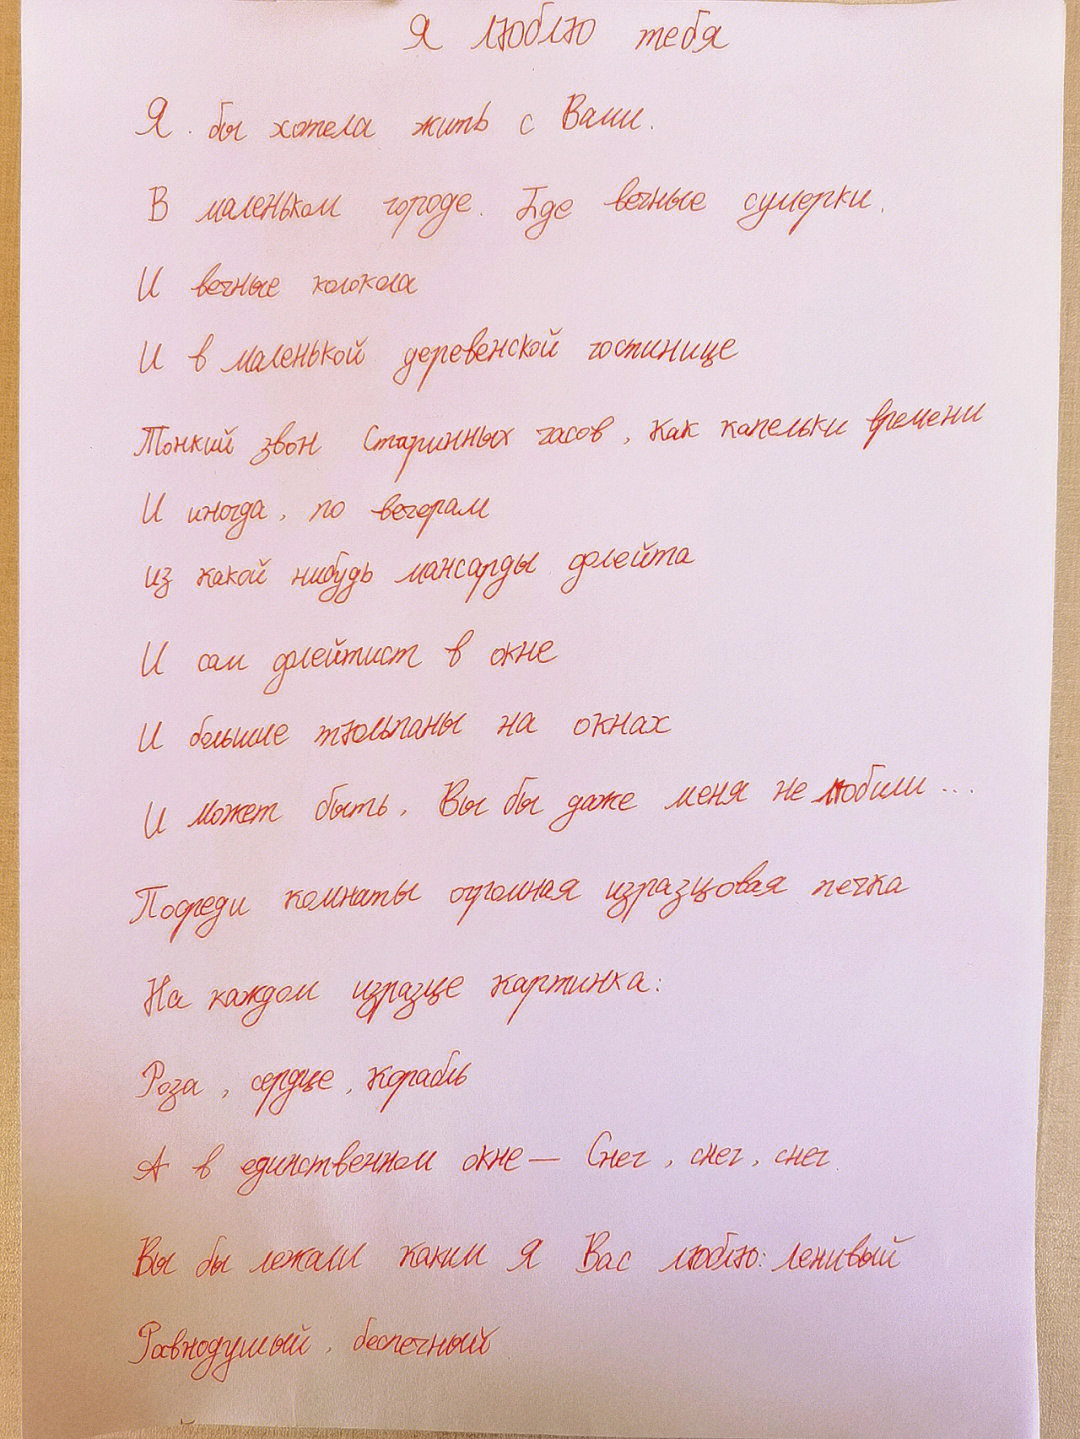 Я люблю тебя
Я бы хотела жить с Вами.
В маленьком городе. Где вечные сумерки.
И вечные колокола
И в маленькой деревенской гостинице
Тонкий звон Старинных часов, как капельки времени
И иногда, по вечерам
из какой нибудь мансарды флейта
И сам флейтист в окне
И большие тюльпаны на окнах
И может быть, Вы бы даже меня не любили...
Посреди комнаты огромная изразцовая печка
На каждом изразце картинка:
Роза, сердце, корабль
А в единственном окне — Снег, снег, снег.
Вы бы лежали каким я Вас люблю: ленивый
Равнодушый, беспечный